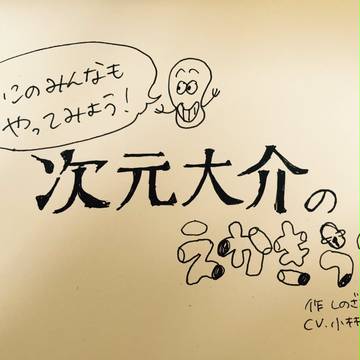 にのみんなも
やってみよう!
次元大介の
えかきう
作 しのざ
CV.小林